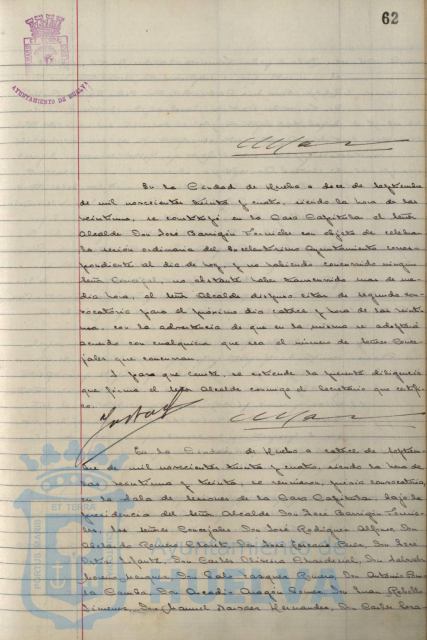 62
AYUNTAMIENTO DE HUELVA
En la Ciudad de Huelva a doce de Septiembre
de mil novecientos treinta y cuatro, siendo la hora de las
veintiuna, se constituyó en la Casa Capitular el señor
Alcalde Don José Barrigón Fornieles con objeto de celebrar
la sesión ordinaria del Excelentísimo Ayuntamiento corres-
pondiente al día de hoy, y no habiendo concurrido ningún
señor Concejal, no obstante haber transcurrido mas de me-
dia hora, el señor Alcalde dispuso citar de segunda con-
vocatoria para el próximo día catorce y hora de las veintiu-
na, con la advertencia de que en la misma se adoptará
acuerdo con cualquiera que sea el número de señores Conce-
jales que concurran.
Y para que conste, se extiende la presente diligencia
que firma el señor Alcalde conmigo el Secretario que certifi-
co.
En la Ciudad de Huelva a catorce de Septiem-
bre de mil novecientos treinta y cuatro, siendo la hora de
las veintiuna y treinta, se reunieron, previa convocatoria,
en la Sala de Sesiones de la Casa Capitular, bajo la
presidencia del señor Alcalde Don José Barrigón Fornie-
les, los señores Concejales Don José Rodríguez Alfonso, Don
Don José
Ortiz Don Carlos Oliveira Chardenal, Don Salvador
Moreno Márquez, Don Pablo Vázquez Don Antonio
la Camba, Don Arcadio Aragón Gómez, Don Juan Rebollo
Jiménez, Don Manuel Hernández, Don Carlos
Ayuntamiento de Huelva
PORTUS MARIS
ET TERRAE